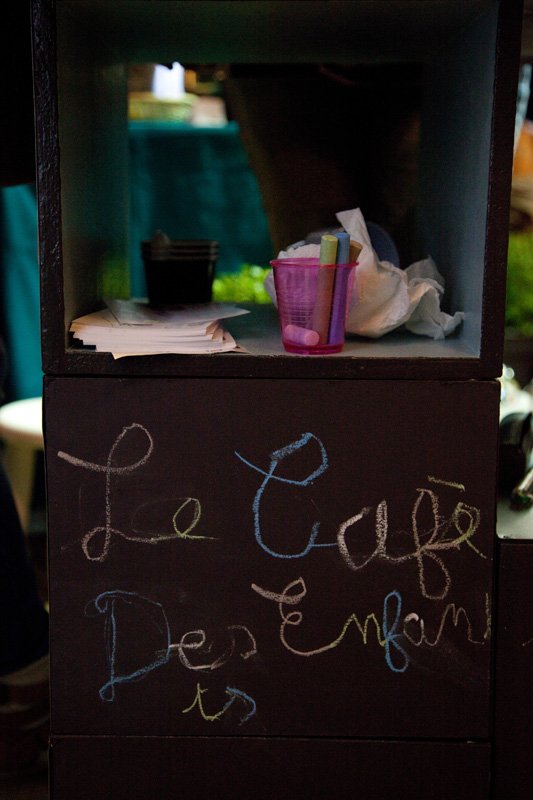 Le Cafè
Des Enfan
ts